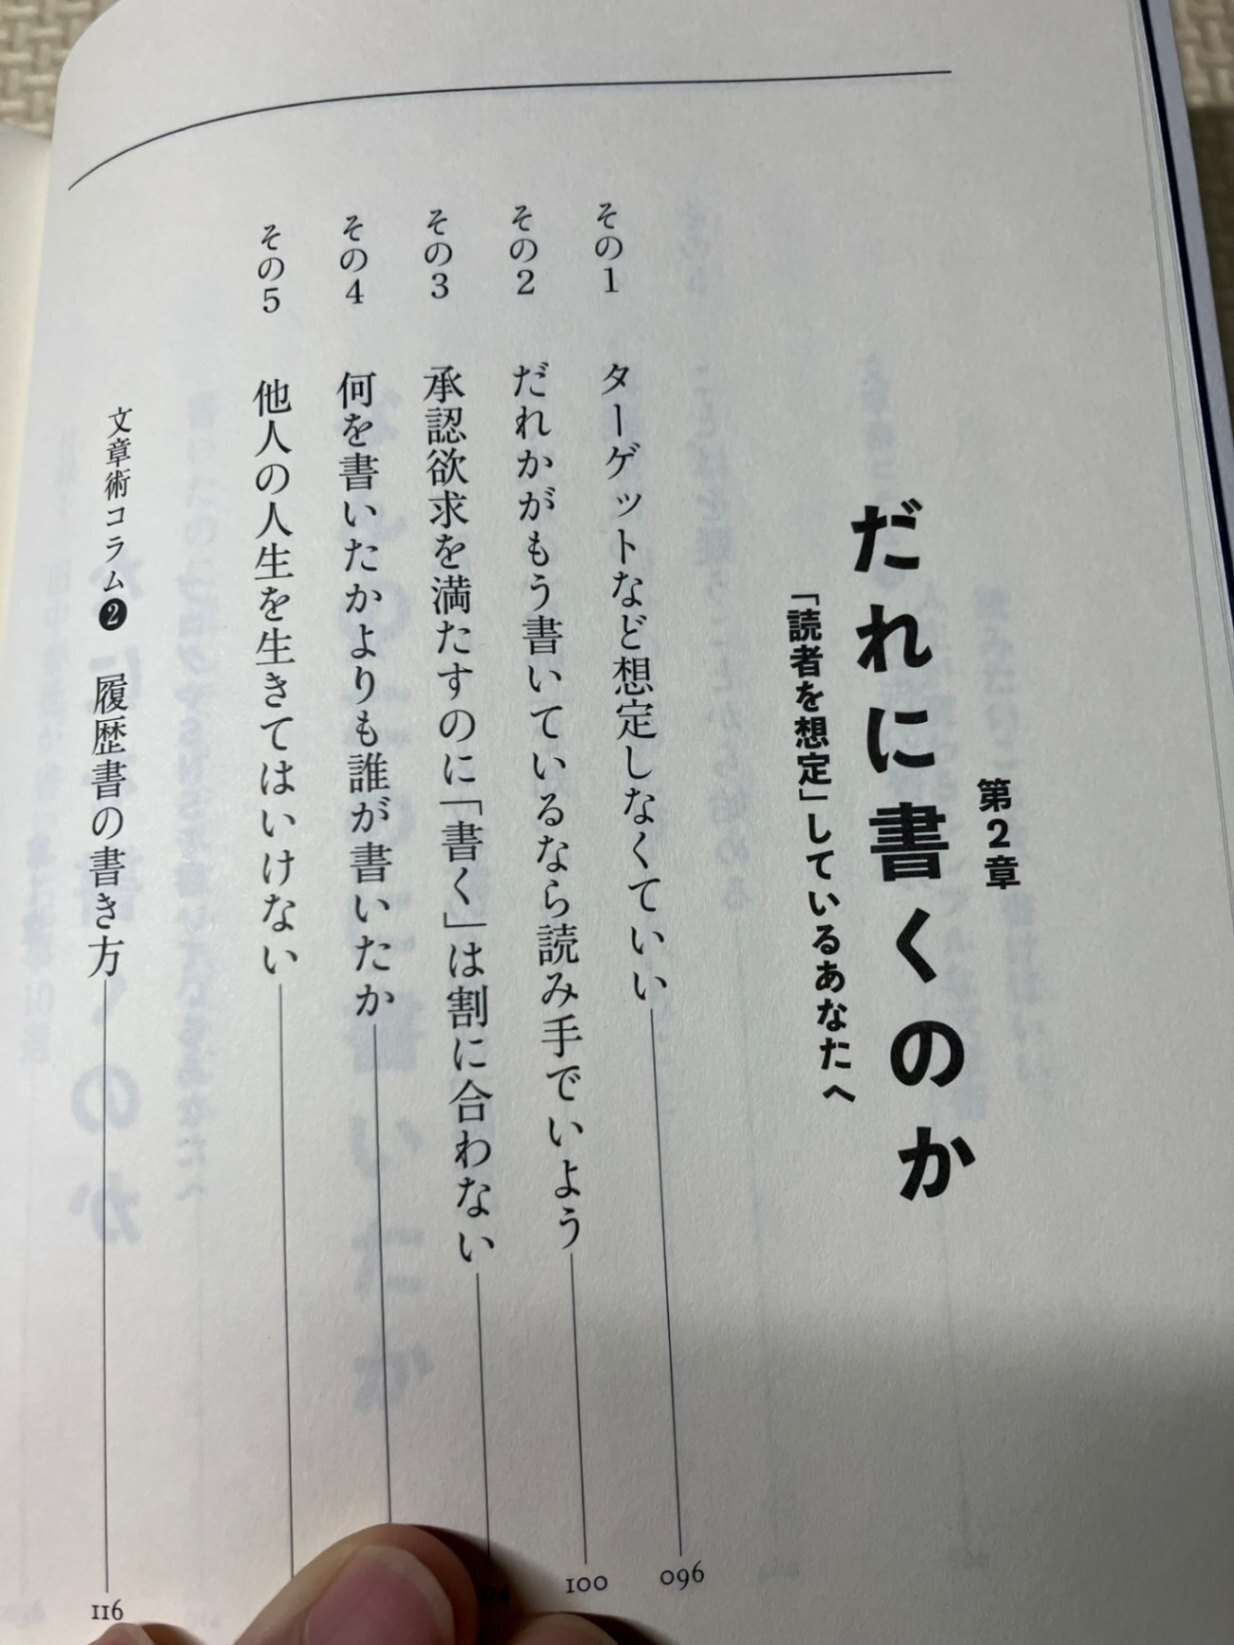 第2章
だれに書くのか
「読者を想定」しているあなたへ
その1 ターゲットなど想定しなくていい 096
その2 だれかがもう書いているなら読み手でいよう 100
その3 承認欲求を満たすのに「書く」は割に合わない
その4 何を書いたかよりも誰が書いたか
その5 他人の人生を生きてはいけない
文章術コラム❷ 履歴書の書き方 116